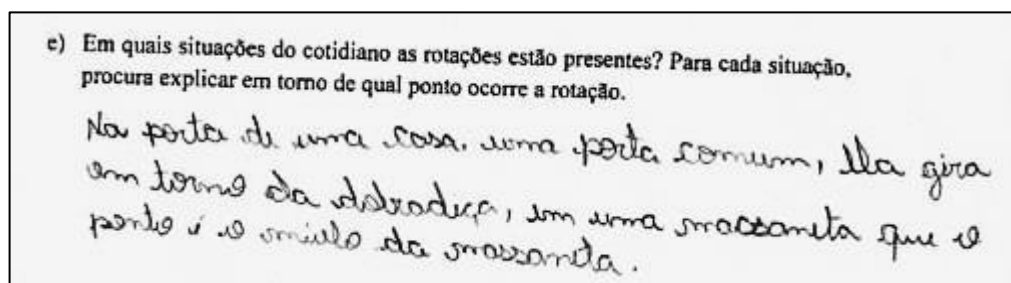 e) Em quais situações do cotidiano as rotações estão presentes? Para cada situação,
procura explicar em torno de qual ponto ocorre a rotação.
Na porta de uma casa, uma porta comum, ela gira
em torno da dobradiça, em uma massaneta que o
ponto é o miolo da massaneta.